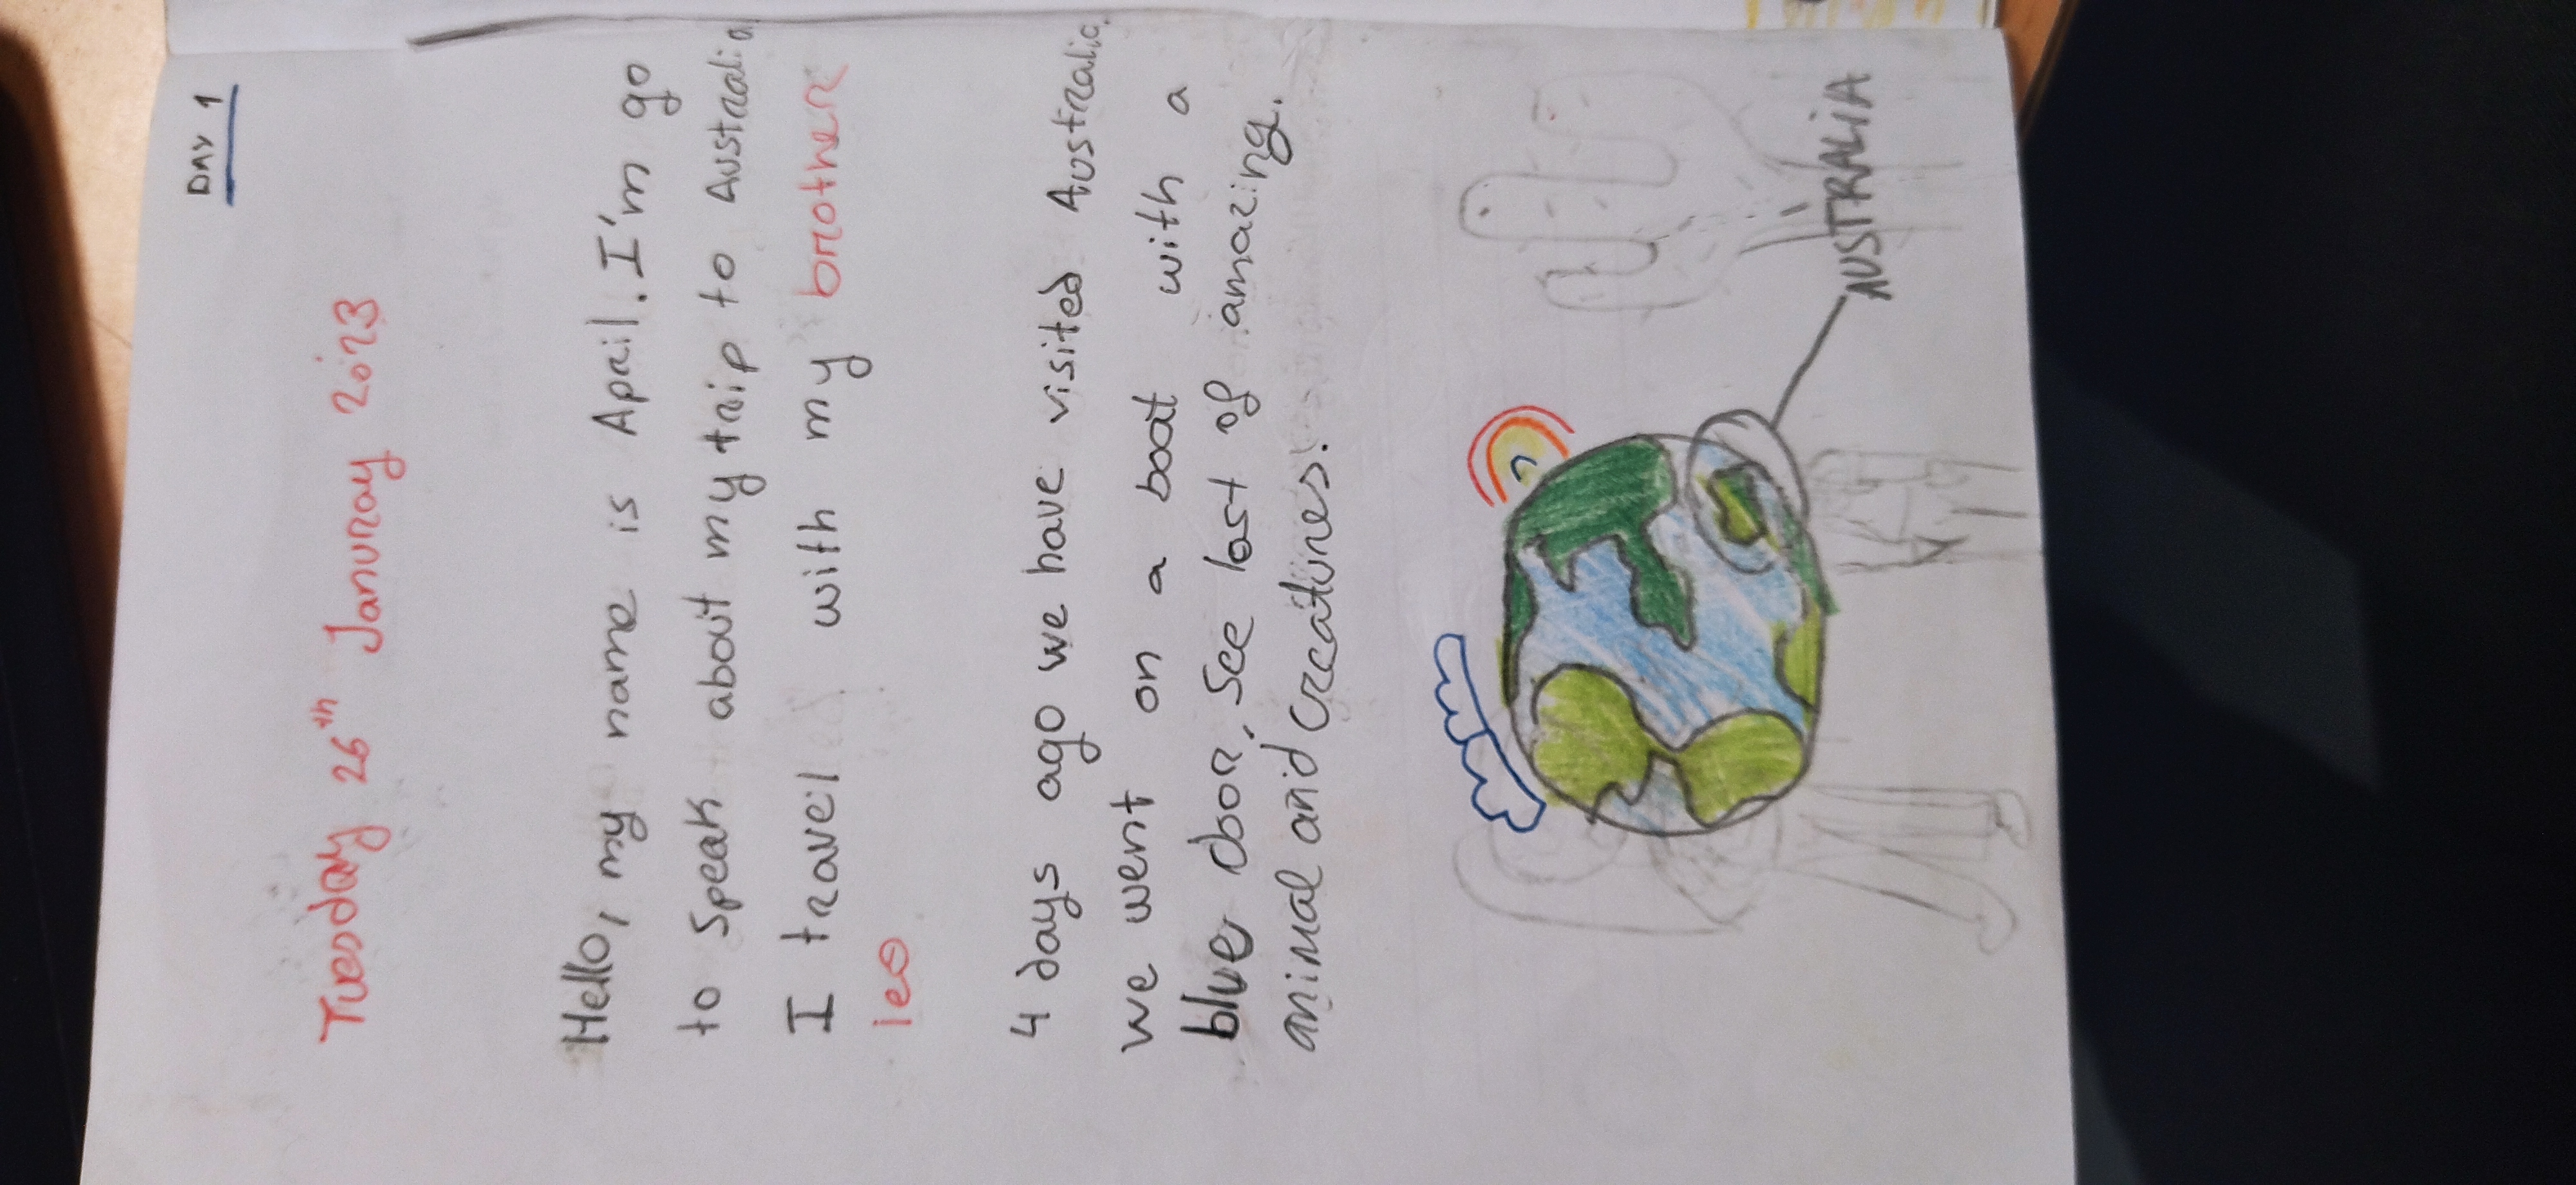 DAY 1
Tuesday 26th Januray 2023
Hello, my name is April. I'm go
to speak about my trip to Australia
I travel with my brother
leo
4 days ago we have visited Australia,
we went on a boat with a
blue door, see lost of amazing.
animal and creatures.
AUSTRALIA